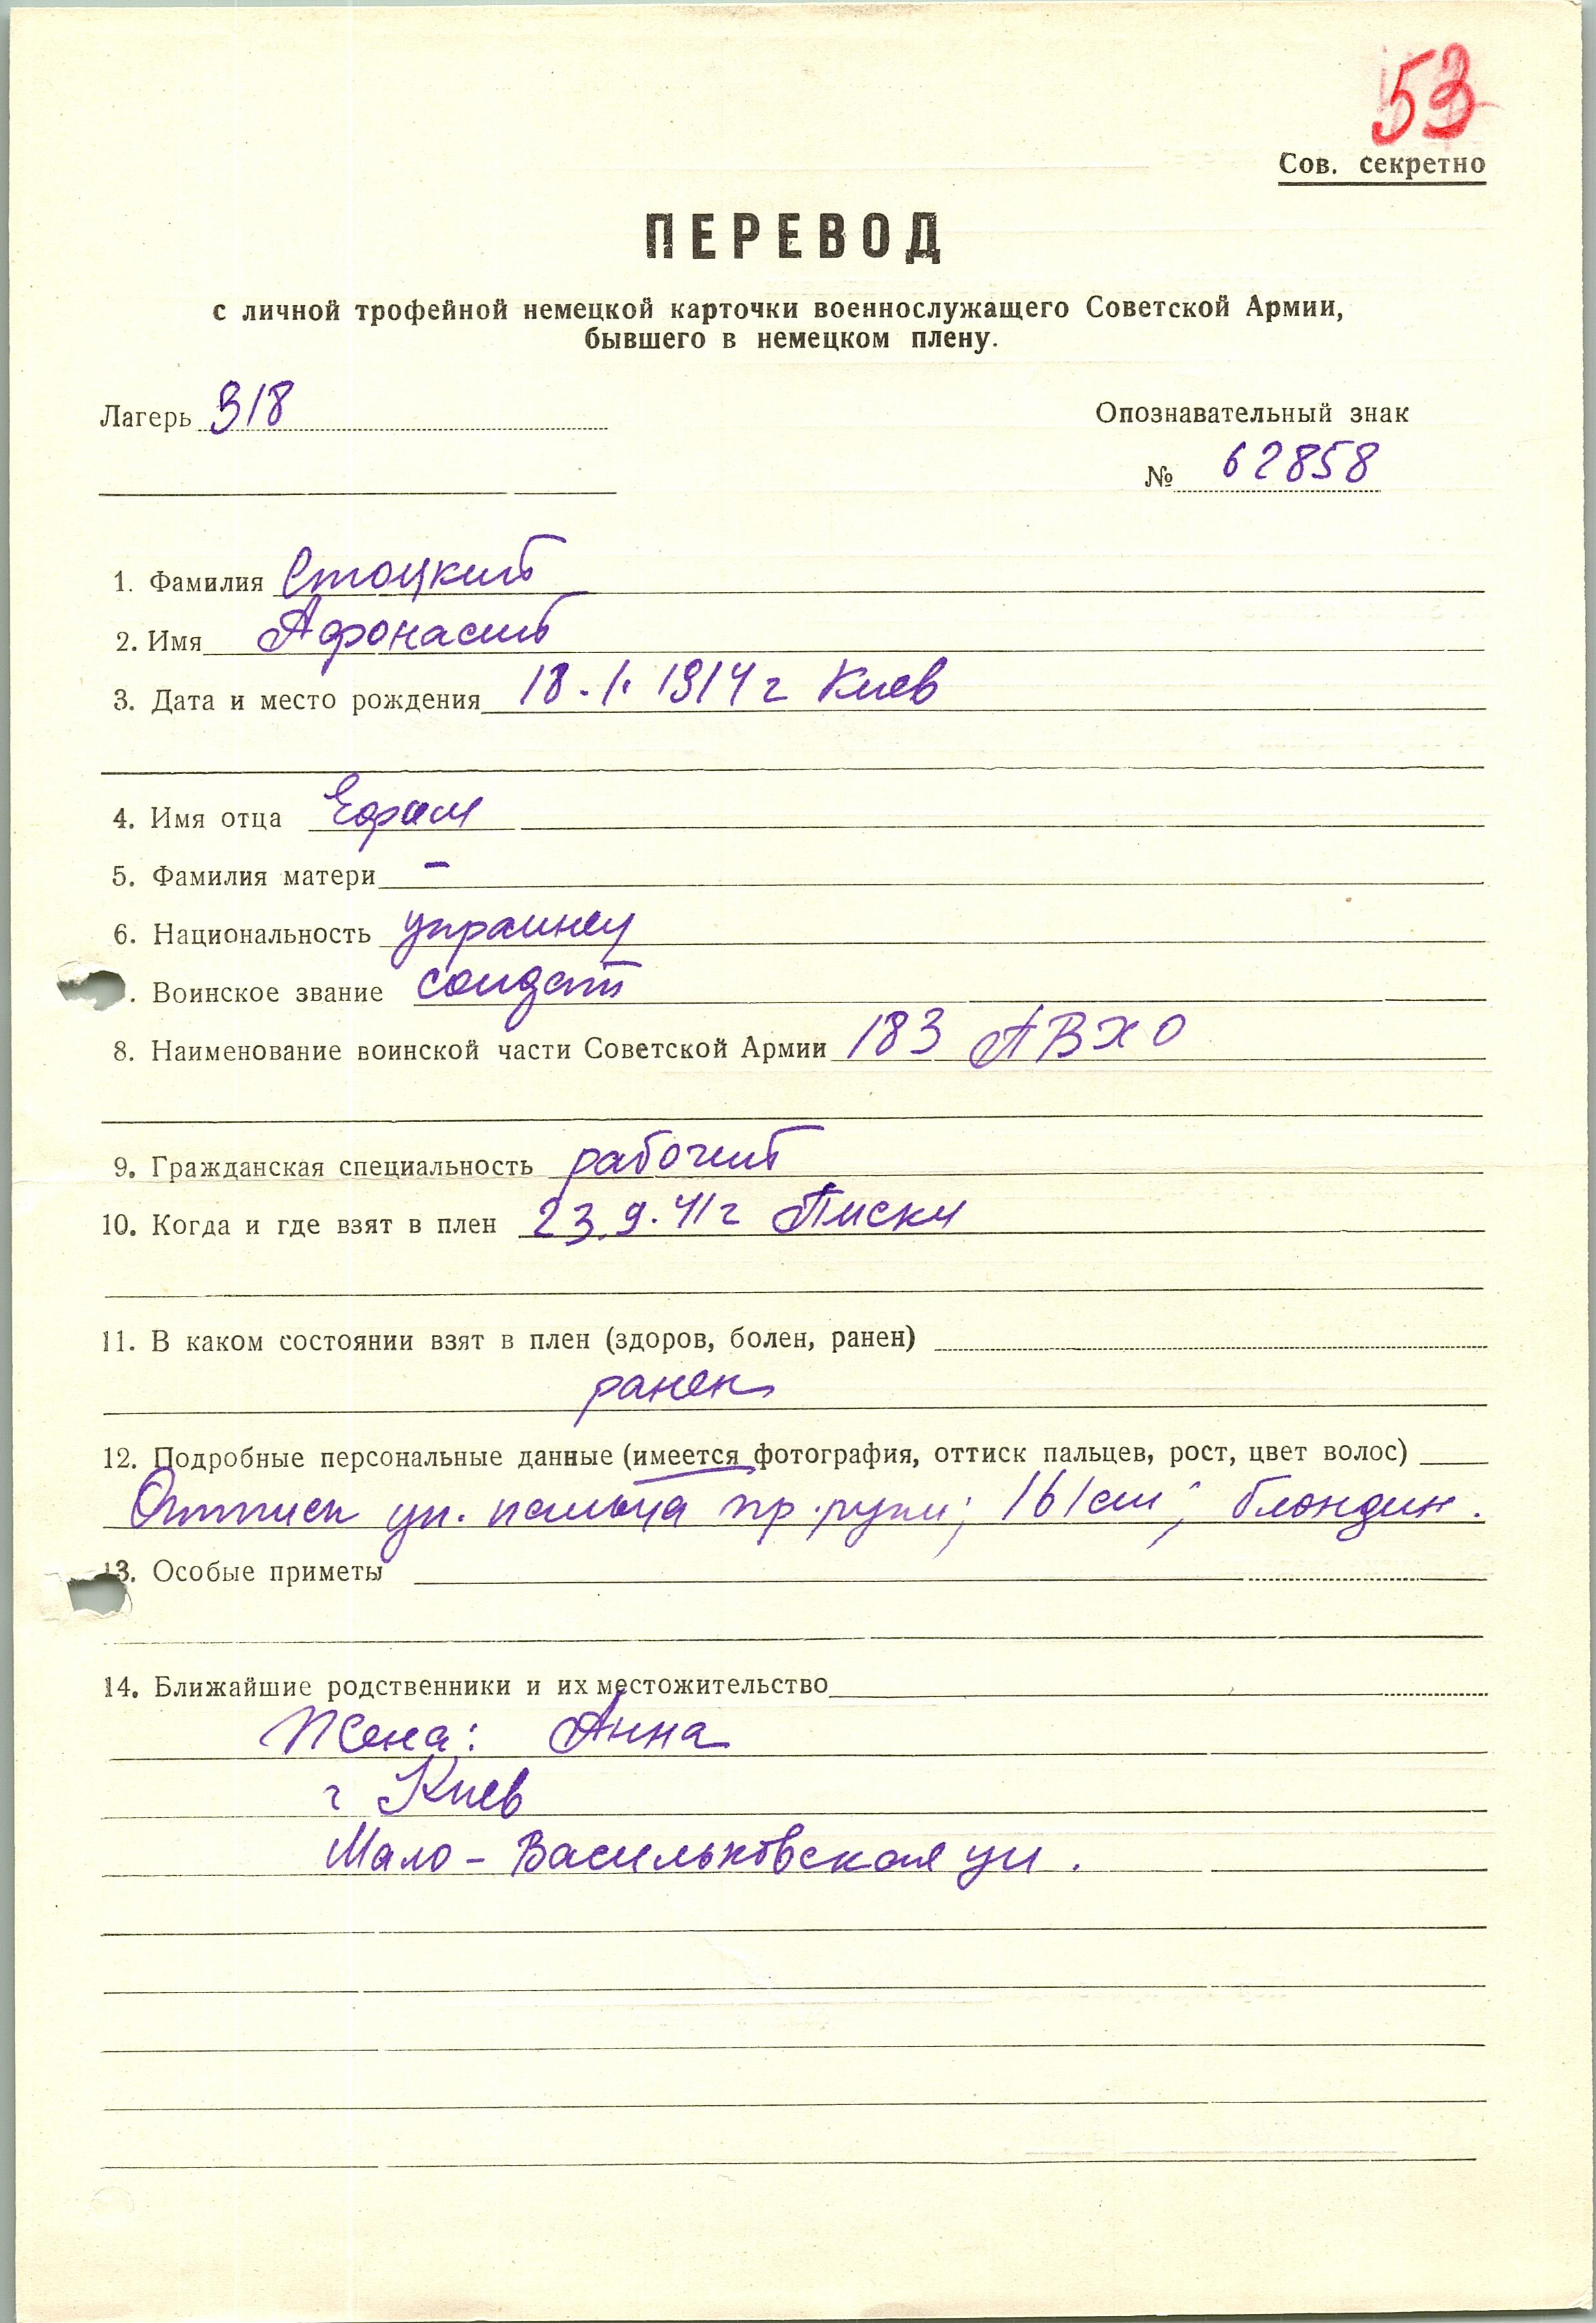 53
Сов. секретно
ПЕРЕВОД
с личной трофейной немецкой карточки военнослужащего Советской Армии,
бывшего в немецком плену.
Лагерь 318
Опознавательный знак
№ 62858
1. Фамилия Стоцкий
2. Имя Афонасий
3. Дата и место рождения 18.1.1914 г Киев
4. Имя отца Ефрем
5. Фамилия матери –
6. Национальность украинец
. Воинское звание солдат
8. Наименование воинской части Советской Армии 183 АВХО
9. Гражданская специальность рабочий
10. Когда и где взят в плен 23.9.41 г Писки
11. В каком состоянии взят в плен (здоров, болен, ранен)
ранен
12. Подробные персональные данные (имеется фотография, оттиск пальцев, рост, цвет волос)
Оттиск ук. пальца пр. руки; 161 см; блондин.
13. Особые приметы
14. Ближайшие родственники и их местожительство
Жена: Анна
г Киев
Мало-Васильковская ул.